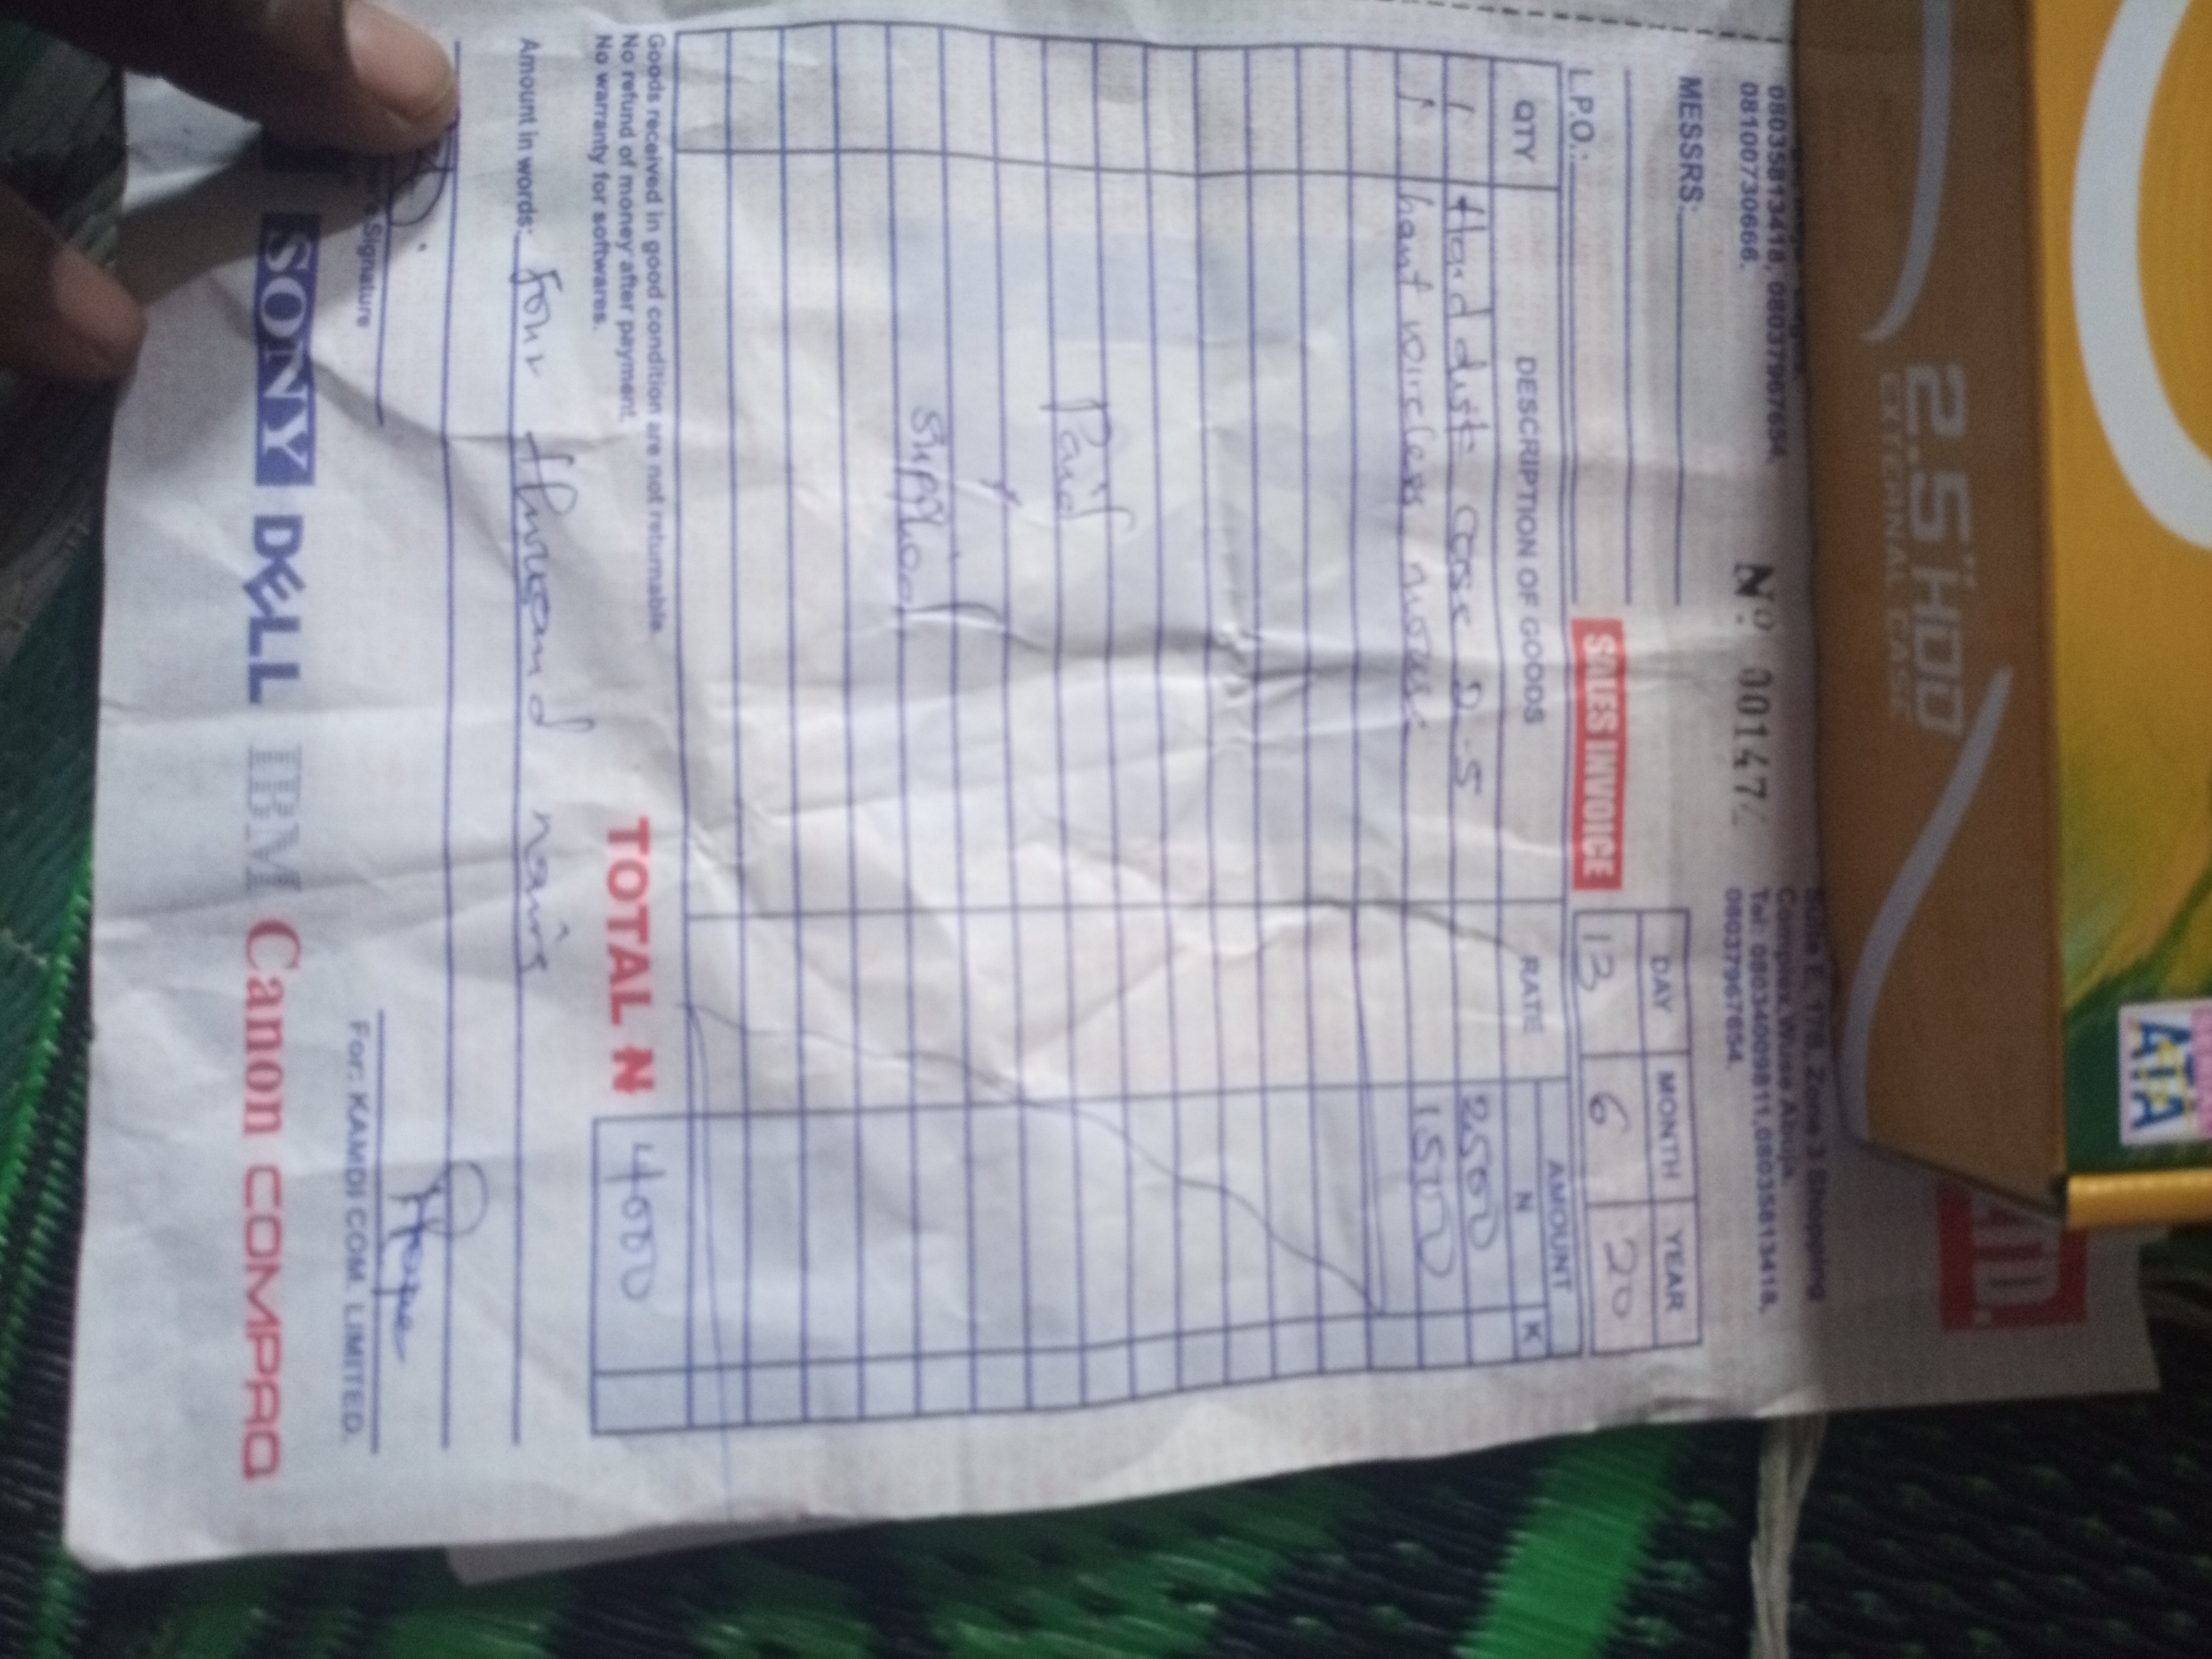 2.5" HDD
EXTERNAL CASE
08035813418, 08037967654,
08100730666.
Nº 00147
Suite E. 17B, Zone 3 Shopping
Complex Wuse Abuja.
Tel: 08034009811, 08035813418,
08037967654.
MESSRS:
DAY MONTH YEAR
13 6 20
L.P.O.:
SALES INVOICE
QTY DESCRIPTION OF GOODS RATE AMOUNT
N K
1 Hard dist case 2.5 2500
1 wireless mouse 1500
Paid
&
Supplied
Goods received in good condition are not returnable.
No refund of money after payment.
No warranty for softwares.
TOTAL N 4000
Amount in words: Four thousand naira
Signature
For: KAMDI COM. LIMITED.
SONY DELL IBM Canon COMPAQ